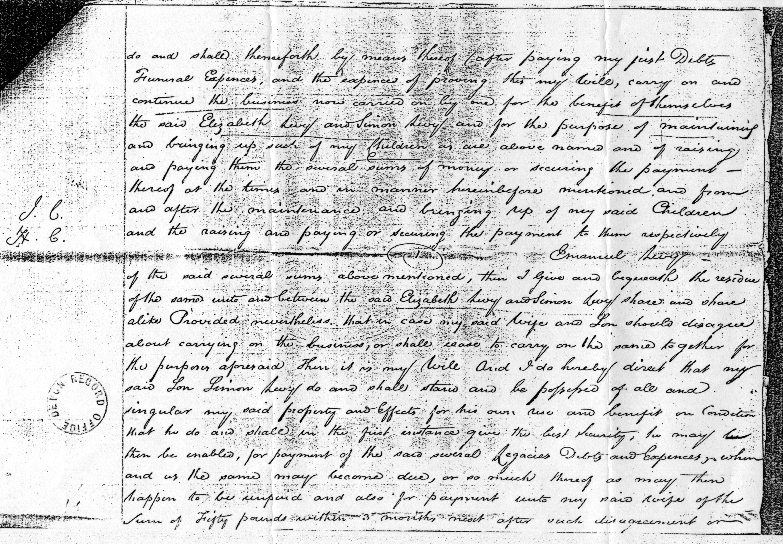 do and shall thenceforth by means thereof (after paying my just Debts
Funeral Expences, and the expence of proving this my Will, carry on and
continue the business now carried on by me, for the benefit of themselves
the said Elizabeth Levy and Simon Levy and for the purpose of maintaining
and bringing up such of my Children as are above name and of raising
and paying them the several sums of money or securing the payment –
thereof at the times and in manner hereinbefore mentioned and from
and after the maintenance and bringing up of my said Children
and the raising and paying or securing the payment to them respectively
J. C.
H C.
1
Emanuel Levy
of the said several sums above mentioned, then I Give and bequeath the residue
of the same unto and between the said Elizabeth Levy and Simon Levy share and share
alike Provided nevertheless that in case my said Wife and Son should disagree
about carrying on the business, or shall cease to carry on the same together for
the purposes aforesaid Then it is my Will And I do hereby direct that my
said Son Simon Levy do and shall stand and be possessed of all and
singular my said property and Effects for his own use and benefit on Condition
that he do and shall in the first instance give the best Security, he may
then be enabled, for payment of the said several Legacies Debts and Expences, when
and as the same may become due, or so much thereof as may then
happen to be unpaid and also for payment unto my said Wife of the
Sum of Fifty pounds within 3 months next after such disagreement or
DEVON RECORD OFFICE